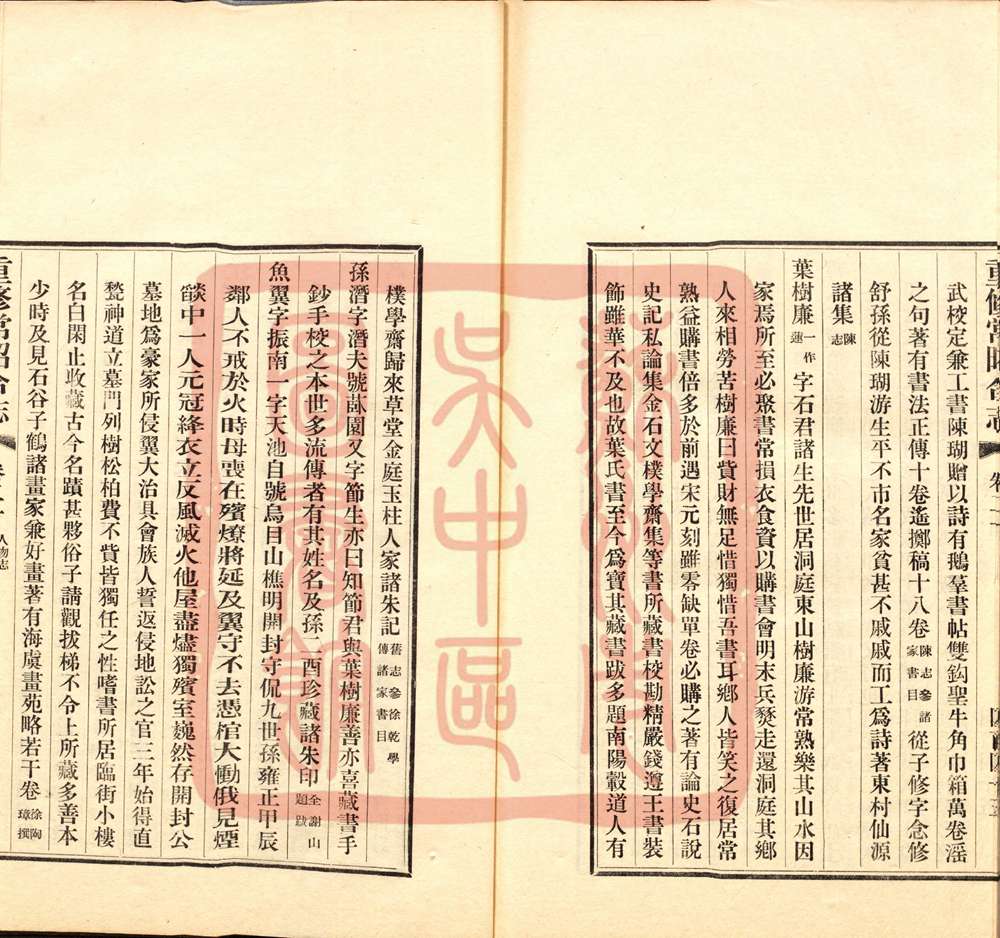 重修常昭合志
武校定兼工書陳瑚贈以詩有鵝羣書帖雙鈎聖牛角巾箱萬卷淫
之句著有書法正傳十卷遙擲稿十八卷陳志參諸家書目從子修字念修
舒孫從陳瑚游生平不市名家貧甚不戚戚而工爲詩著東村仙源
諸集陳志
葉樹廉一作蓮字石君諸生先世居洞庭東山樹廉游常熟樂其山水因
家焉所至必聚書常損衣食資以購書會明末兵燹走還洞庭其鄉
人來相勞苦樹廉曰貲財無足惜獨惜吾書耳鄉人皆笑之復居常
熟益購書倍多於前遇宋元刻雖零缺單卷必購之著有論史石說
史記私論集金石文樸學齋集等書所藏書校勘精嚴錢遵王書裝
飾雖華不及也故葉氏書至今爲寶其藏書跋多題南陽轂道人有
樸學齋歸來草堂金庭玉柱人家諸朱記舊志參徐乾學傳諸家書目
孫潛字潛夫號菻園又字節生亦曰知節君與葉樹廉善亦喜藏書手
鈔手校之本世多流傳者有其姓名及孫二酉珍藏諸朱印全謝山題跋
魚翼字振南一字天池自號烏目山樵明開封守侃九世孫雍正甲辰
鄰人不戒於火時母喪在殯燎將延及翼守不去憑棺大慟俄見煙
燄中一人元冠絳衣立反風滅火他屋盡燼獨殯室巍然存開封公
墓地爲豪家所侵翼大治具會族人誓返侵地訟之官三年始得直
甃神道立墓門列樹松柏費不貲皆獨任之性嗜書所居臨街小樓
名白閑止收藏古今名蹟甚夥俗子請觀拔梯不令上所藏多善本
少時及見石谷子鶴諸畫家兼好畫著有海虞畫苑略若干卷徐陶璋撰
重修常昭合志 人物志